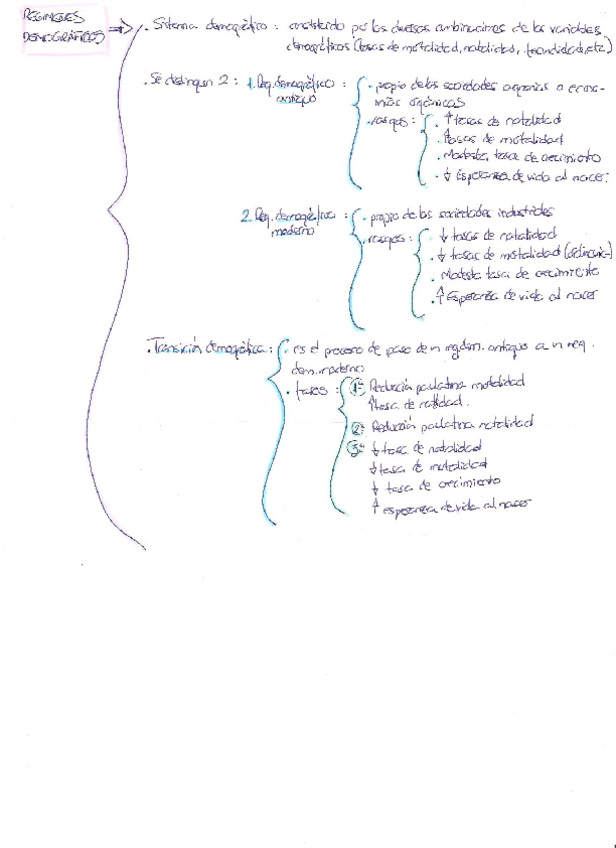 REGÍMENES
DEMOGRÁFICOS → . Sistema demográfico : constituido por las diversas combinaciones de las variables
demográficas (tasas de mortalidad, natalidad, fecundidad, etc.)
. Se distinguen 2 : 1. Reg. demográfico
antiguo
. propio de las sociedades agrarias o econo-
mías orgánicas
. rasgos :
. ↑ tasas de natalidad
. ↑ tasas de mortalidad
. Modesta tasa de crecimiento
. ↓ Esperanza de vida al nacer.
2. Reg. demográfico
moderno
. propio de las sociedades industriales
. rasgos :
. ↓ tasas de natalidad
. ↓ tasas de mortalidad
. Modesta tasa de crecimiento
. ↑ Esperanza de vida al nacer
. Transición demográfica :
. es el proceso de paso de un reg. dem. antiguo a un reg.
dem. moderno
. fases :
1ª Reducción paulatina mortalidad
↑ tasa de natalidad.
2ª Reducción paulatina natalidad
3ª ↓ tasa de natalidad
↓ tasa de mortalidad
↓ tasa de crecimiento
↑ esperanza de vida al nacer